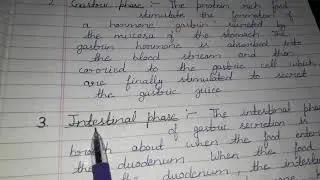 Gastric phase :- The protein rich food
stimulate the formation of
a hormone gastrin secreted by
the mucosa of the stomach The
gastrin hormone is absorbed into
the blood stream and then
carried to the gastric cell which
are finally stimulated to secret
the gastric juice
3. Intestinal phase :- The intestinal phase
of gastric secretion is
brough about when the food enters
the duodenum When the food
the duodenum, the intestin